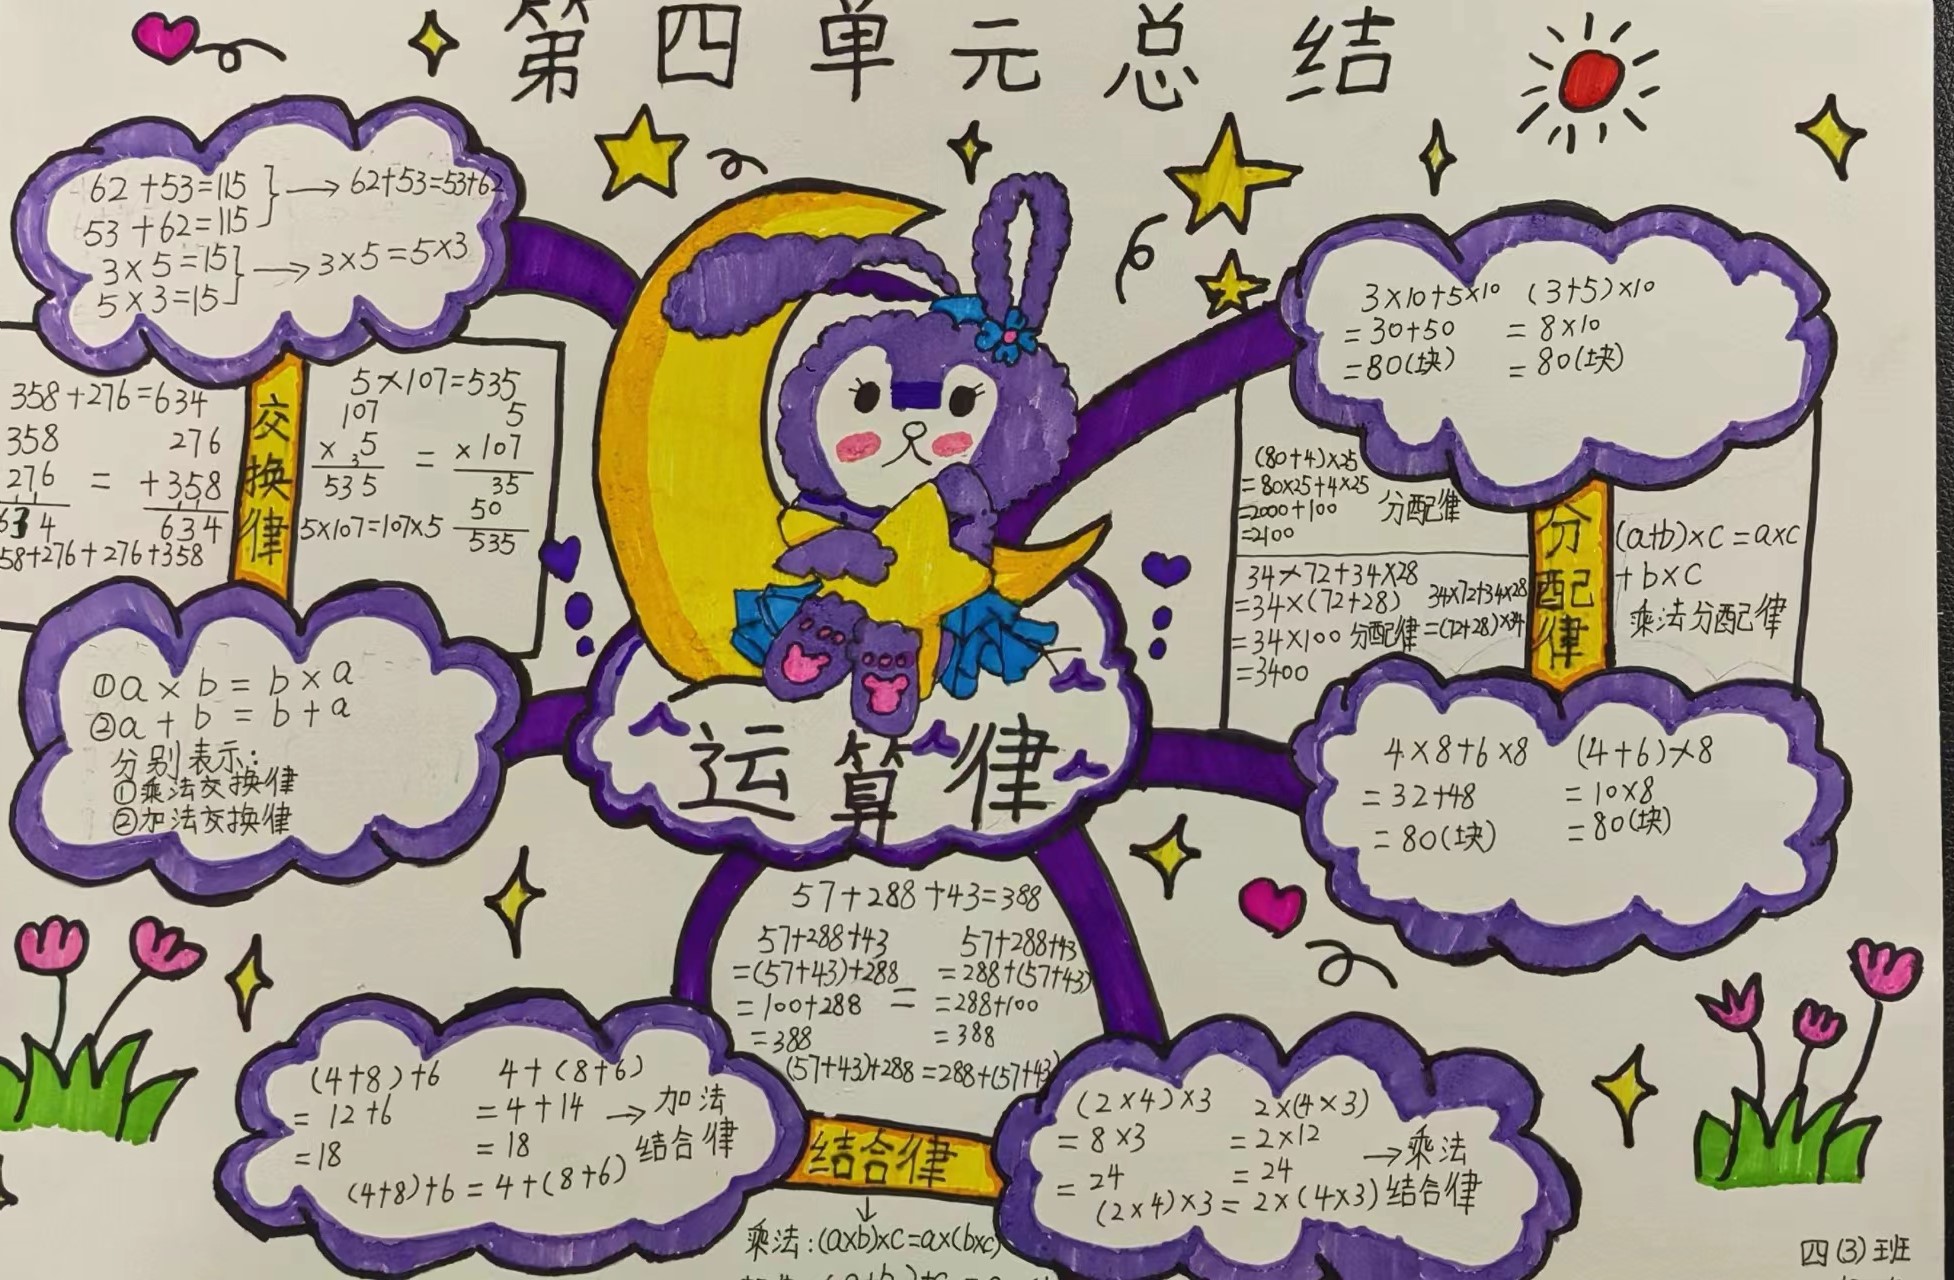 第四单元总结
62+53=115
53+62=115
62+53=53+62
3×5=15
5×3=15
3×5=5×3
358+276=634
358
276
634
=
276
+358
634
58+276+276+358
交换律
5×107=535
107
×5
3
535
=
5
×107
35
50
535
5×107=107×5
①a×b=b×a
②a+b=b+a
分别表示:
①乘法交换律
②加法交换律
运算律
3×10+5×10
=30+50
=80(块)
(3+5)×10
=8×10
=80(块)
(80+4)×25
=80×25+4×25
=2000+100
=2100
分配律
34×72+34×28
=34×(72+28)
=34×100
=3400
分配律
34×72+34×28
=(72+28)×34
分配律
(a+b)×c=a×c
+b×c
乘法分配律
4×8+6×8
=32+48
=80(块)
(4+6)×8
=10×8
=80(块)
57+288+43=388
57+288+43
=(57+43)+288
=100+288
=388
=
57+288+43
=288+(57+43)
=288+100
=388
(57+43)+288=288+(57+43)
(4+8)+6
=12+6
=18
4+(8+6)
=4+14
=18
→加法
结合律
(4+8)+6=4+(8+6)
结合律
乘法:(a×b)×c=a×(b×c)
(2×4)×3
=8×3
=24
2×(4×3)
=2×12
=24
→乘法
结合律
(2×4)×3=2×(4×3)
四(3)班